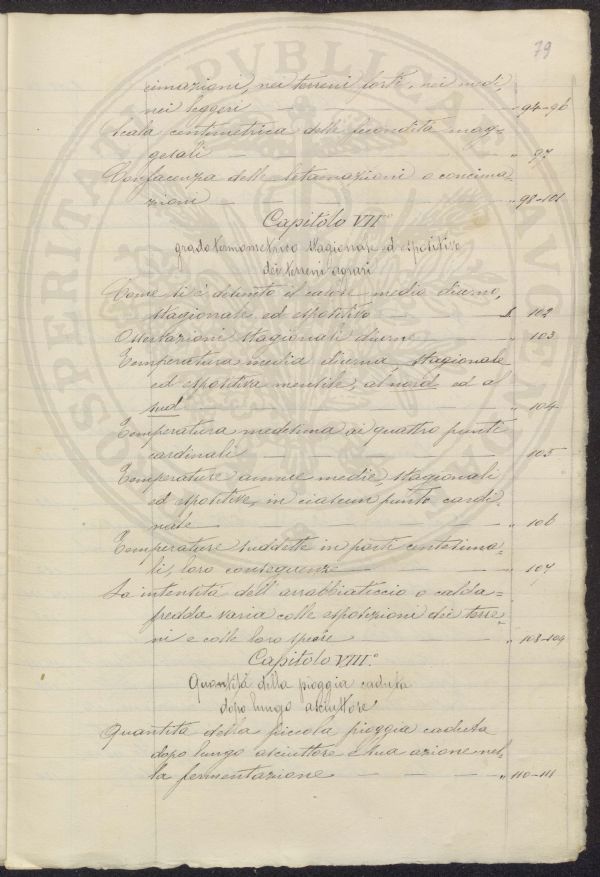 79
cimazioni, nei terreni forti, nei medi,
nei leggeri — — — — " 94-96
Scala centimetrica della fecondità mag-
gesali — — — — " 97
Confacenza delle letamazioni o concima-
zioni — — — — " 98-101
Capitolo VII°
grado termometrico stagionale ed espositivo
dei terreni agrari
Come si è ottenuto il calore medio diurno,
stagionale ed espositivo — — § 102
Osservazioni stagionali diurne — " 103
Temperatura media diurna, stagionale
ed espositiva mensile, al nord ed al
sud — — — — " 104
Temperatura medesima ai quattro punti
cardinali — — — — " 105
Temperature annue medie, stagionali
ed espositive, in ciascun punto cardi-
nale — — — — " 106
Temperature suddette in parti centesima-
li, loro conseguenze — — " 107
La intensità dell'arrabbiaticcio o calda=
fredda varia colle esposizioni dei terre-
ni e colle loro specie — — " 108-109
Capitolo VIII.°
Quantità della pioggia caduta
dopo lungo asciuttore
Quantità della piccola pioggia caduta
dopo lungo asciuttore e sua azione nel-
la fermentazione — — — " 110-111
PROSPERITATI PVBLICAE AVGENDAE